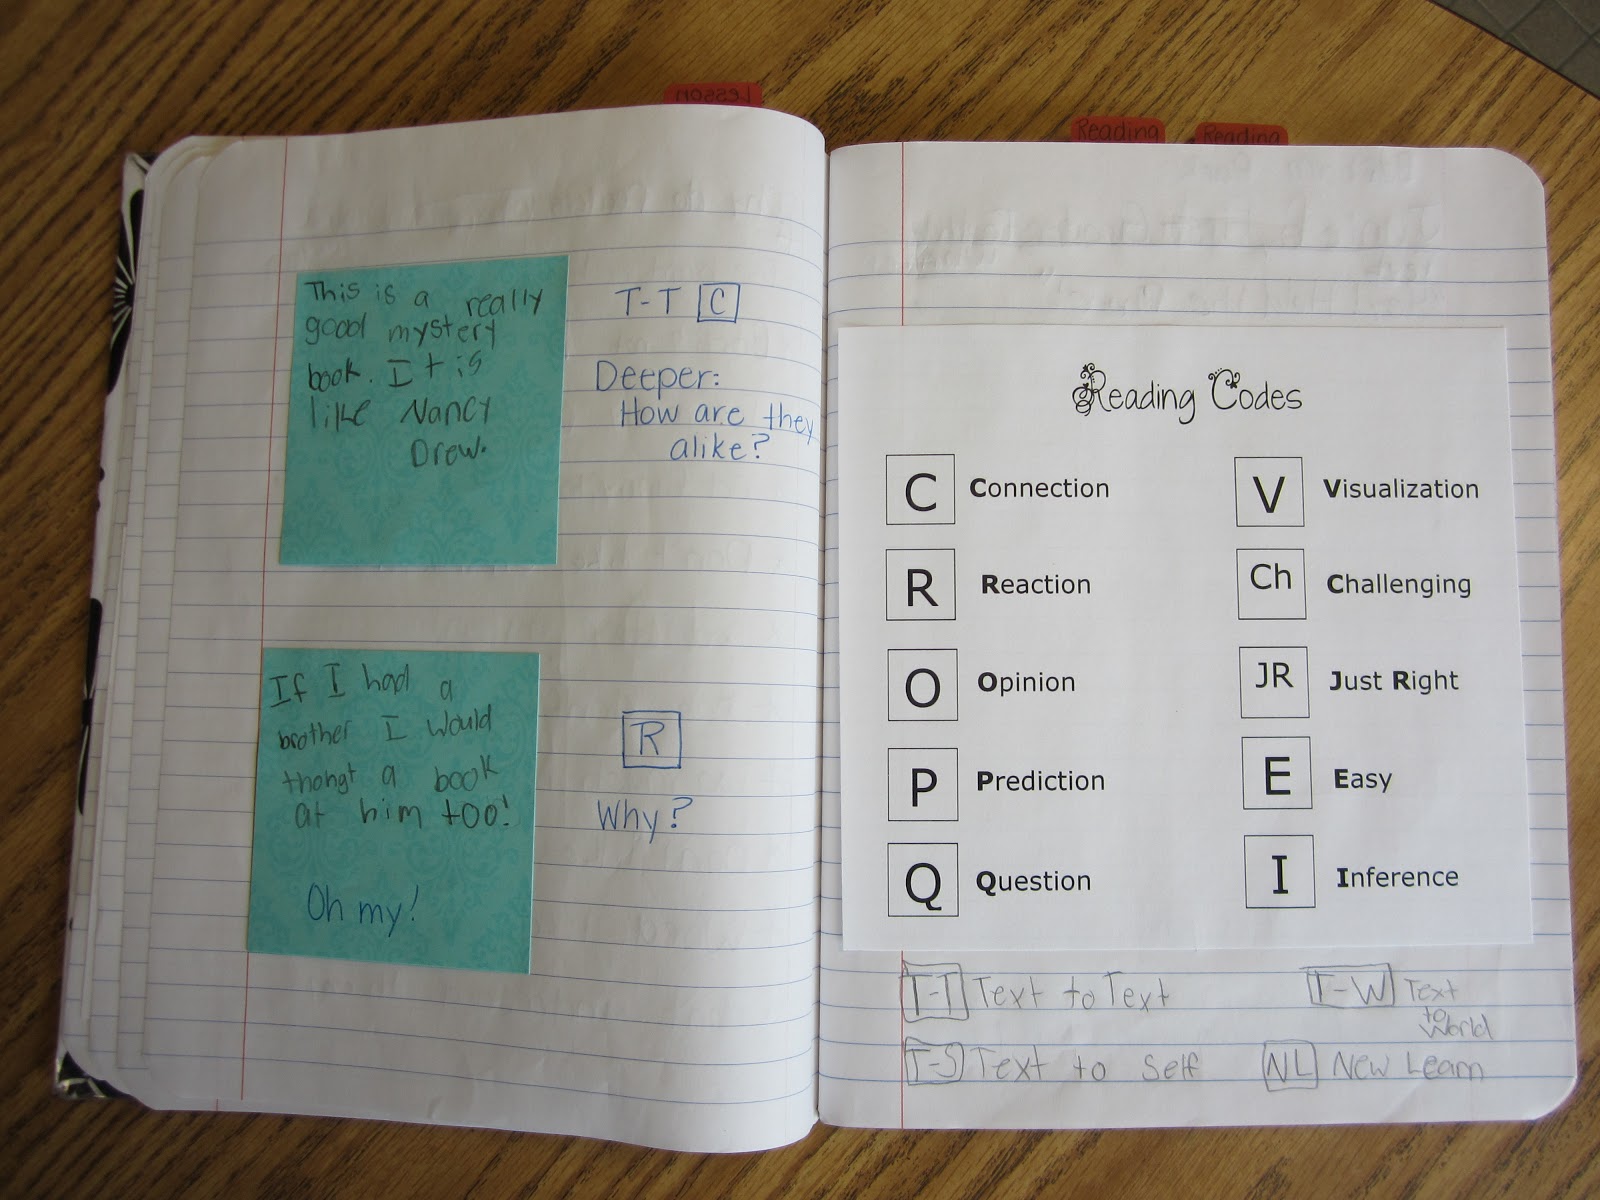 Lesson
Reading
Reading
This is a really
good mystery
book. It is
like Nancy
Drew.
T-T C
Deeper:
How are they
alike?
If I had a
brother I would
thongt a book
at him too!
Oh my!
R
Why?
Reading Codes
C Connection
R Reaction
O Opinion
P Prediction
Q Question
V Visualization
Ch Challenging
JR Just Right
E Easy
I Inference
T-T Text to Text
T-W Text
to
World
T-S Text to Self
NL New Learn